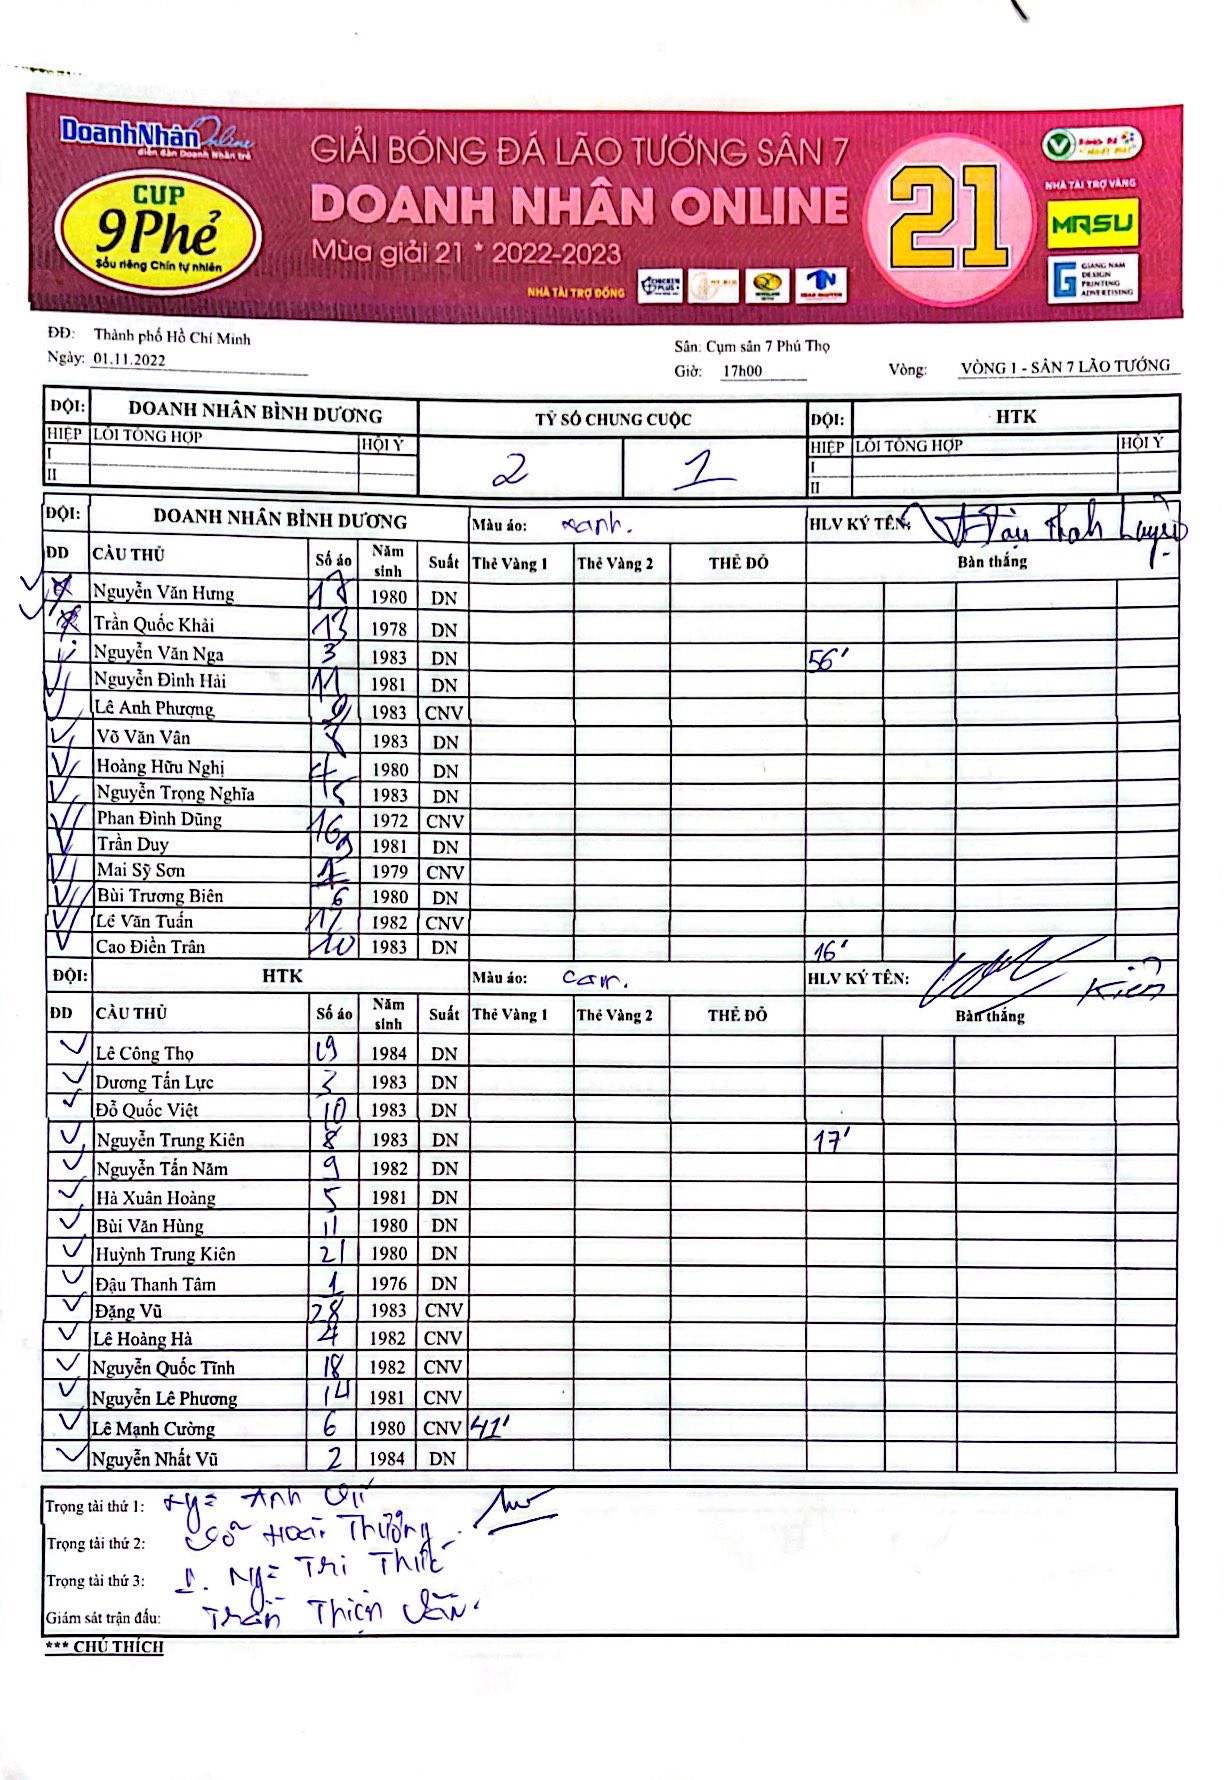 DoanhNhân Online
diễn đàn Doanh Nhân trẻ
CUP
9Phẻ
Sầu riêng Chín tự nhiên
GIẢI BÓNG ĐÁ LÃO TƯỚNG SÂN 7
DOANH NHÂN ONLINE
Mùa giải 21 * 2022-2023
NHÀ TÀI TRỢ ĐỒNG
CHICKEN PLUS
21
NHÀ TÀI TRỢ VÀNG
MRSU
GIANG NAM
DESIGN
PRINTING
ADVERTISING
ĐĐ: Thành phố Hồ Chí Minh
Ngày: 01.11.2022
Sân: Cụm sân 7 Phú Thọ
Giờ: 17h00 Vòng: VÒNG 1 - SÂN 7 LÃO TƯỚNG
ĐỘI: DOANH NHÂN BÌNH DƯƠNG TỶ SỐ CHUNG CUỘC ĐỘI: HTK
HIỆP LỖI TỔNG HỢP HỘI Ý 2 1 HIỆP LỖI TỔNG HỢP HỘI Ý
I I
II II
ĐỘI: DOANH NHÂN BÌNH DƯƠNG Màu áo: xanh. HLV KÝ TÊN:
ĐD CẦU THỦ Số áo Năm sinh Suất Thẻ Vàng 1 Thẻ Vàng 2 THẺ ĐỎ Bàn thắng
Nguyễn Văn Hưng 1980 DN
Trần Quốc Khải 13 1978 DN
Nguyễn Văn Nga 3 1983 DN 56'
Nguyễn Đình Hải 11 1981 DN
Lê Anh Phượng 1983 CNV
Võ Văn Vân 8 1983 DN
Hoàng Hữu Nghị 4 1980 DN
Nguyễn Trọng Nghĩa 15 1983 DN
Phan Đình Dũng 16 1972 CNV
Trần Duy 9 1981 DN
Mai Sỹ Sơn 1979 CNV
Bùi Trương Biên 6 1980 DN
Lê Văn Tuấn 17 1982 CNV
Cao Điền Trân 10 1983 DN 16'
ĐỘI: HTK Màu áo: cam. HLV KÝ TÊN: Kiên
ĐD CẦU THỦ Số áo Năm sinh Suất Thẻ Vàng 1 Thẻ Vàng 2 THẺ ĐỎ Bàn thắng
Lê Công Thọ 19 1984 DN
Dương Tấn Lực 3 1983 DN
Đỗ Quốc Việt 10 1983 DN
Nguyễn Trung Kiên 8 1983 DN 17'
Nguyễn Tấn Năm 9 1982 DN
Hà Xuân Hoàng 5 1981 DN
Bùi Văn Hùng 11 1980 DN
Huỳnh Trung Kiên 21 1980 DN
Đậu Thanh Tâm 1 1976 DN
Đặng Vũ 28 1983 CNV
Lê Hoàng Hà 4 1982 CNV
Nguyễn Quốc Tĩnh 18 1982 CNV
Nguyễn Lê Phương 14 1981 CNV
Lê Mạnh Cường 6 1980 CNV 41'
Nguyễn Nhất Vũ 2 1984 DN
Trọng tài thứ 1: Anh
Trọng tài thứ 2: Võ Hoài Thưởng
Trọng tài thứ 3: Tri Thức
Giám sát trận đấu: Trần Thiện
*** CHÚ THÍCH